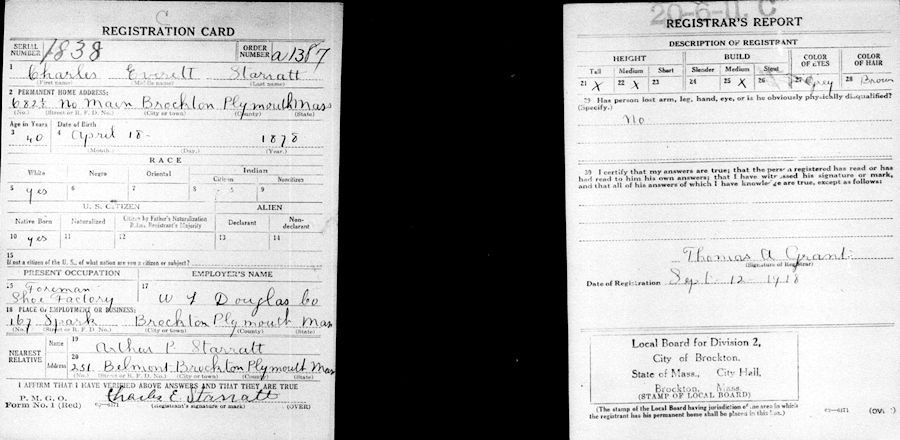 C
REGISTRATION CARD
SERIAL NUMBER 1838 ORDER NUMBER a1387
1 Charles Everett Starratt
(First name) (Middle name) (Last name)
2 PERMANENT HOME ADDRESS:
682½ No Main Brockton Plymouth Mass
(No.) (Street or R. F. D. No.) (City or town) (County) (State)
Age in Years Date of Birth
3 40 4 April 18- 1878
(Month.) (Day.) (Year.)
RACE
White Negro Oriental Indian
Citizen Noncitizen
5 yes 6 7 8 9
U. S. CITIZEN ALIEN
Native Born Naturalized Citizen by Father's Naturalization Before Registrant's Majority Declarant Non-declarant
10 yes 11 12 13 14
15
If not a citizen of the U. S., of what nation are you a citizen or subject?
PRESENT OCCUPATION EMPLOYER'S NAME
16 Foreman
Shoe Factory 17 W L Douglas Co
18 PLACE OF EMPLOYMENT OR BUSINESS:
167 Spark Brockton Plymouth Mass
(No.) (Street or R. F. D. No.) (City or town) (County) (State)
NEAREST RELATIVE Name 19 Arthur P Starratt
Address 20 251 Belmont Brockton Plymouth Mass
(No.) (Street or R. F. D. No.) (City or town) (County) (State)
I AFFIRM THAT I HAVE VERIFIED ABOVE ANSWERS AND THAT THEY ARE TRUE
P. M. G. O.
Form No. 1 (Red) Charles E. Starratt
(Registrant's signature or mark) (OVER)
20-6-11. C
REGISTRAR'S REPORT
DESCRIPTION OF REGISTRANT
HEIGHT BUILD COLOR OF EYES COLOR OF HAIR
Tall Medium Short Slender Medium Stout
21 X 22 X 23 24 25 X 26 27 Grey 28 Brown
29 Has person lost arm, leg, hand, eye, or is he obviously physically disqualified?
(Specify.)
No
30 I certify that my answers are true; that the person registered has read or has
had read to him his own answers; that I have witnessed his signature or mark,
and that all of his answers of which I have knowledge are true, except as follows:
Thomas A Grant
(Signature of Registrar)
Date of Registration Sept. 12-1918
Local Board for Division 2,
City of Brockton.
State of Mass., City Hall,
Brockton, Mass.
(STAMP OF LOCAL BOARD)
(The stamp of the Local Board having jurisdiction of the area in which
the registrant has his permanent home shall be placed in this box.)
(OVER)